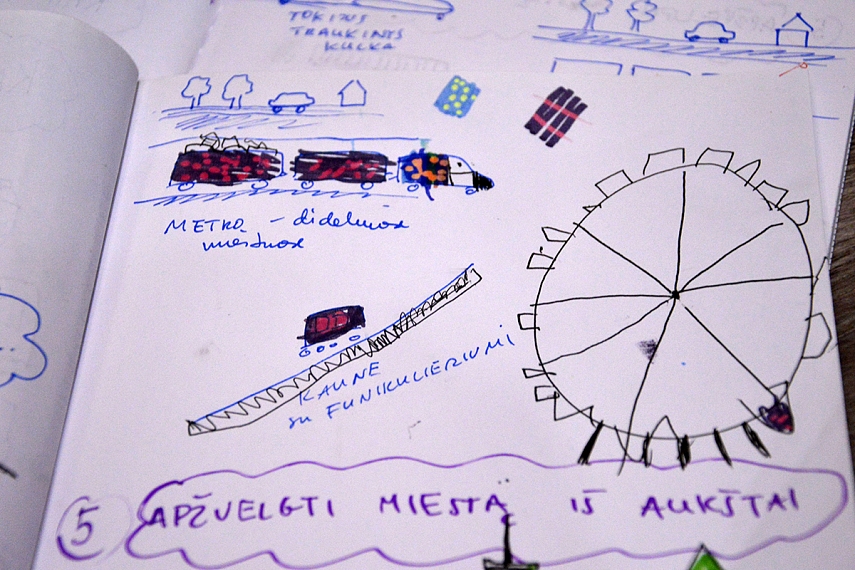 TOKIJUS
TRAUKINYS
KULKA
METRO - didelniose
miestuose
KAUNE
su FUNIKULIERIUMI
5 APŽVELGTI MIESTĄ IŠ AUKŠTAI